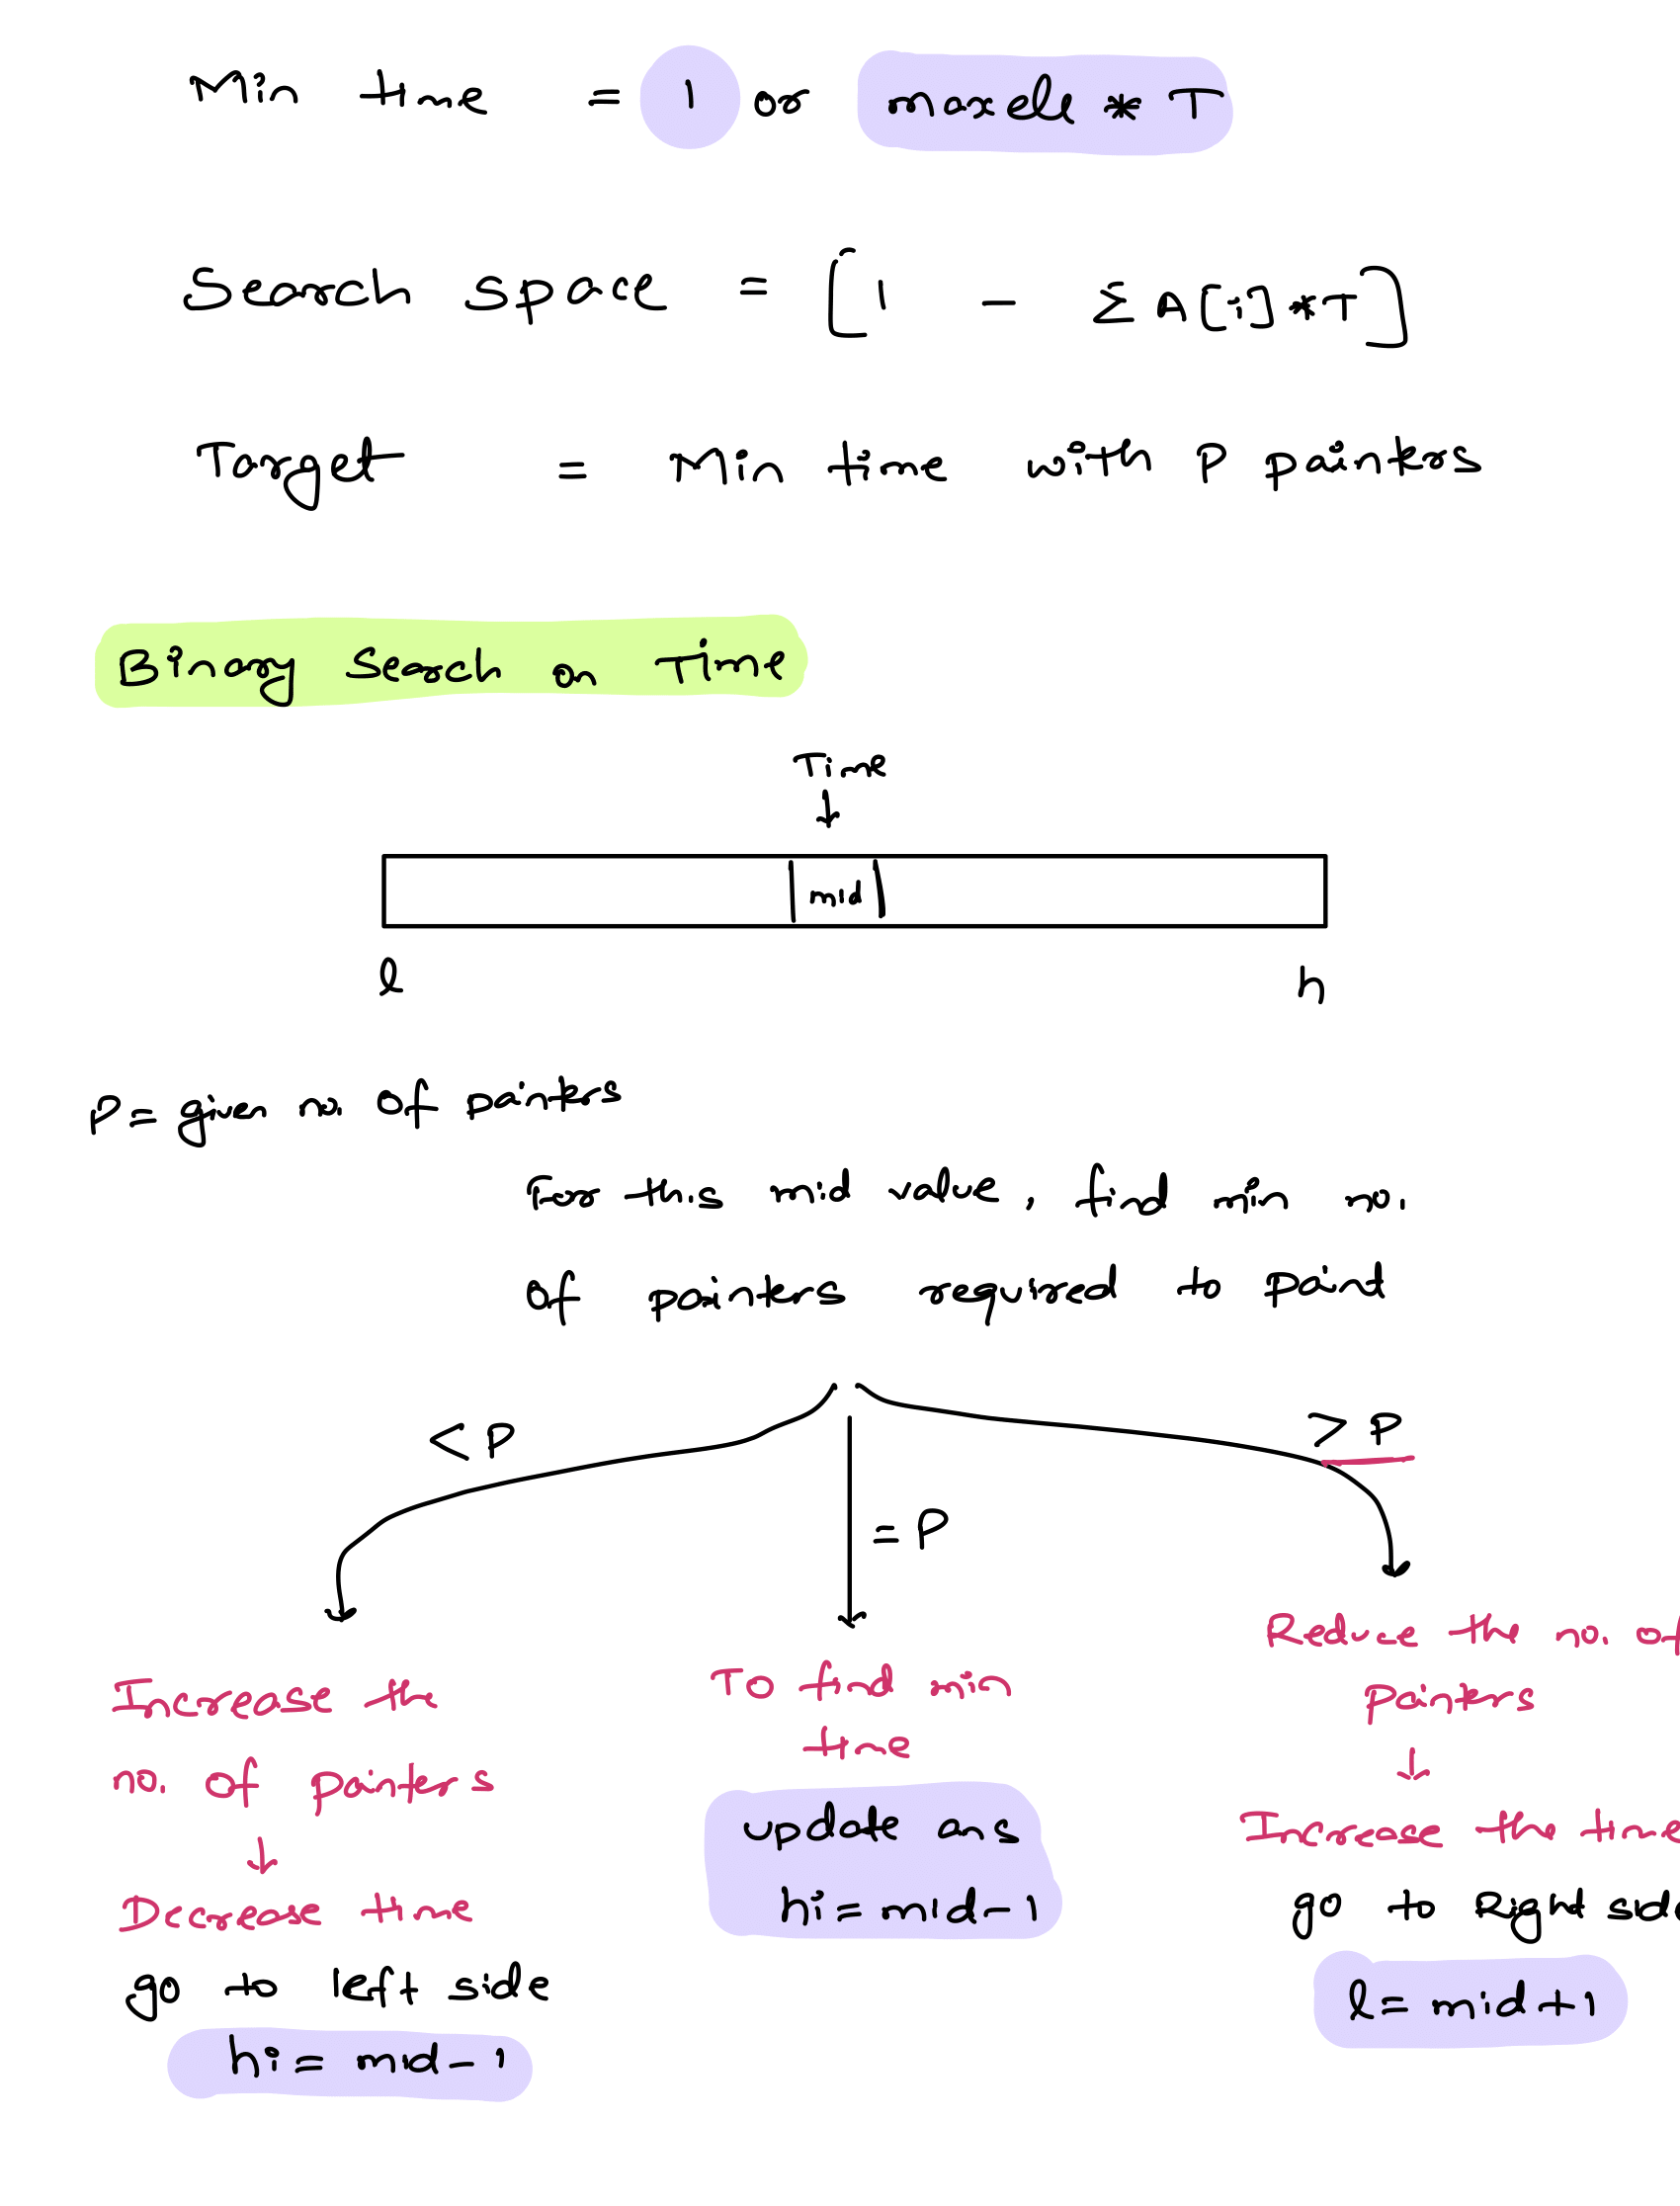 Min time = 1 or maxele * T
Search space = [1 - ΣA[i]*T]
Target = Min time with P painters
Binary Search on Time
Time
↓
mid
l h
P = given no. of painters
For this mid value, find min no.
of painters required to paint
< P = P > P
Increase the
no. of painters
↓
Decrease time
go to left side
hi = mid - 1
To find min
time
update ans
hi = mid - 1
Reduce the no. of
painters
↓
Increase the time
go to Right side
l = mid + 1